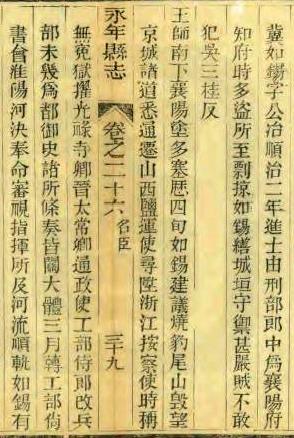 冀如錫字公冶順治二年進士由刑部郎中爲襄陽府
知府時多盜所至剽掠如錫繕城垣守禦甚嚴賊不敢
犯吳三桂反
王師南下襄陽塗多塞歷四旬如錫建議燒豹尾山毀望
京城諸道悉通遷山西鹽運使尋陞浙江按察使時稱
永年縣志 卷之二十六 名臣 三十九
無冤獄擢光祿寺卿晉太常卿通政使工部侍郎改兵
部未幾爲都御史諸所條奏皆關大體三月轉工部尚
書會淮陽河決奉命審視指揮所及河流順軌如錫有